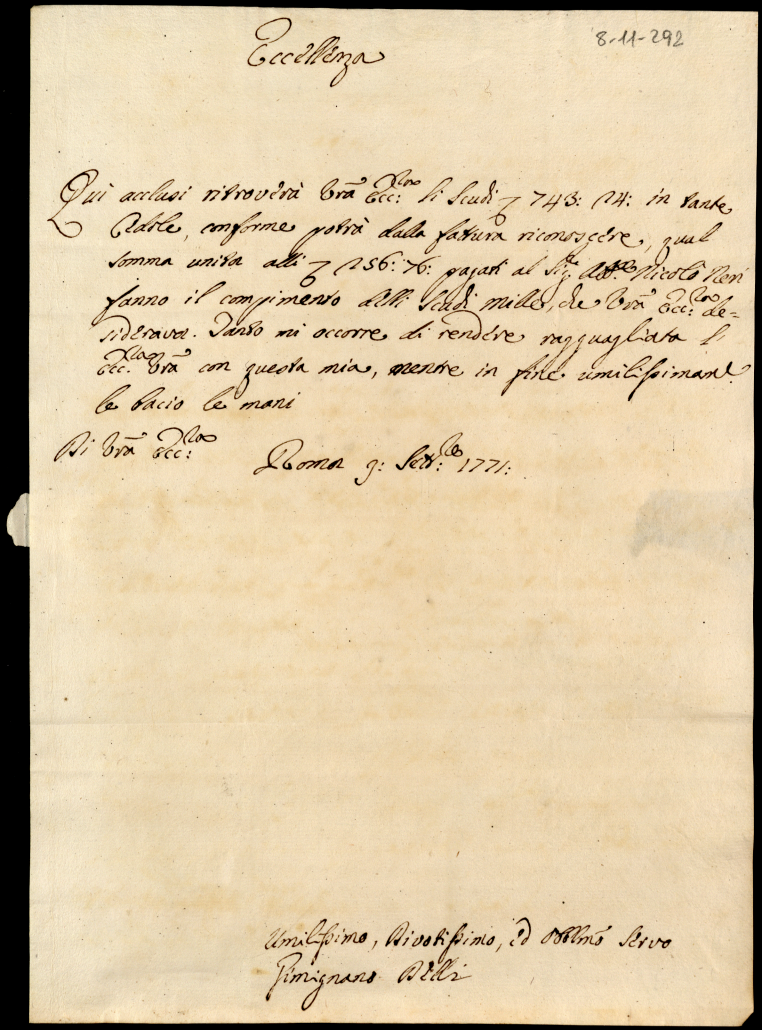 8-11-292
Eccellenza
Qui acclusi ritroverà Vrã Ecc:za li Scudi 743: 24: in tante
Cedole, conforme potrà dalla fattura riconoscere, qual
somma unita alli 256: 76: pagati al Sig:re Nicolò Neri
fanno il compimento delli Scudi mille, che Vrã Ecc:za de=
siderava. Tanto mi occorre di rendere ragguagliata l'
Ecc:za Vrã con questa mia, mentre in fine umilissimamt.e
le bacio le mani
Di Vrã Ecc:za
Roma 9: Sett:re 1771:
Umilissimo, Divotissimo, ed Obblmõ Servo
Gimignano Belli